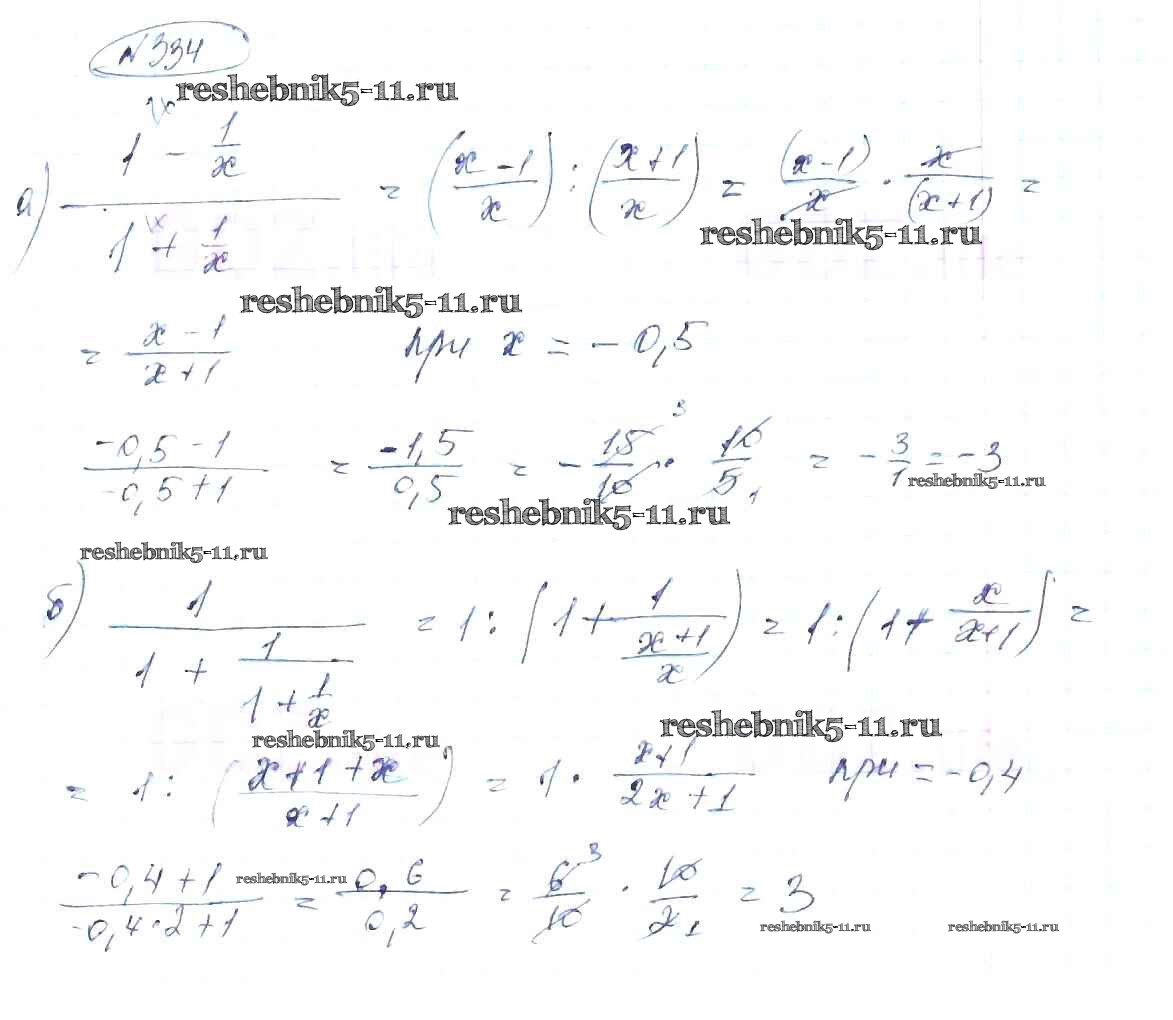 №334
reshebnik5-11.ru
а) (1 - 1/x)/(1 + 1/x) = ((x-1)/x) : ((x+1)/x) = (x-1)/x · x/(x+1) =
reshebnik5-11.ru
reshebnik5-11.ru
= (x-1)/(x+1) при x = -0,5
(-0,5-1)/(-0,5+1) = -1,5/0,5 = - 15/10 · 10/5 = - 3/1 = -3
reshebnik5-11.ru
reshebnik5-11.ru
reshebnik5-11.ru
б) 1/(1 + 1/(1 + 1/x)) = 1 : (1 + 1/((x+1)/x)) = 1 : (1 + x/(x+1)) =
reshebnik5-11.ru
reshebnik5-11.ru
= 1 : ((x+1+x)/(x+1)) = 1 · (x+1)/(2x+1) при = -0,4
(-0,4+1)/(-0,4·2+1) = 0,6/0,2 = 6/10 · 10/2 = 3
reshebnik5-11.ru
reshebnik5-11.ru
reshebnik5-11.ru